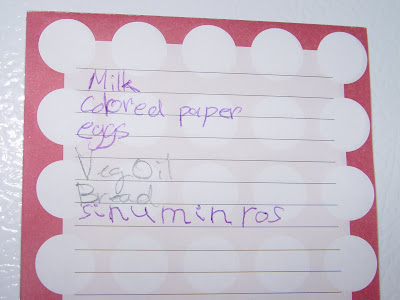 Milk
colored paper
eggs
Veg Oil
Bread
sinuminros